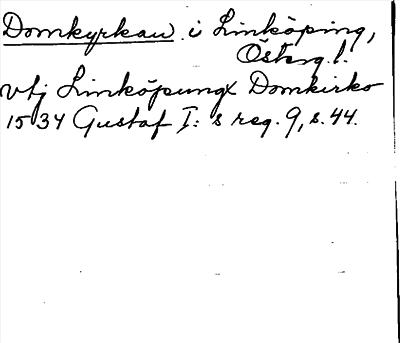 Domkyrkan i Linköping,
Österg.l.
vtj Linköpungx Domkirko
1534 Gustaf I:s reg. 9, s. 44.